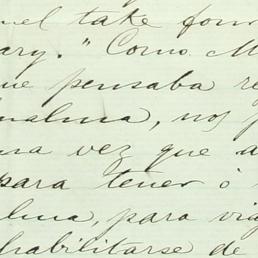 take four
ary." Como M
ue pensaba re
nalma, nos p
na vez que a
para tener ó
lma, para via
habilitarse de